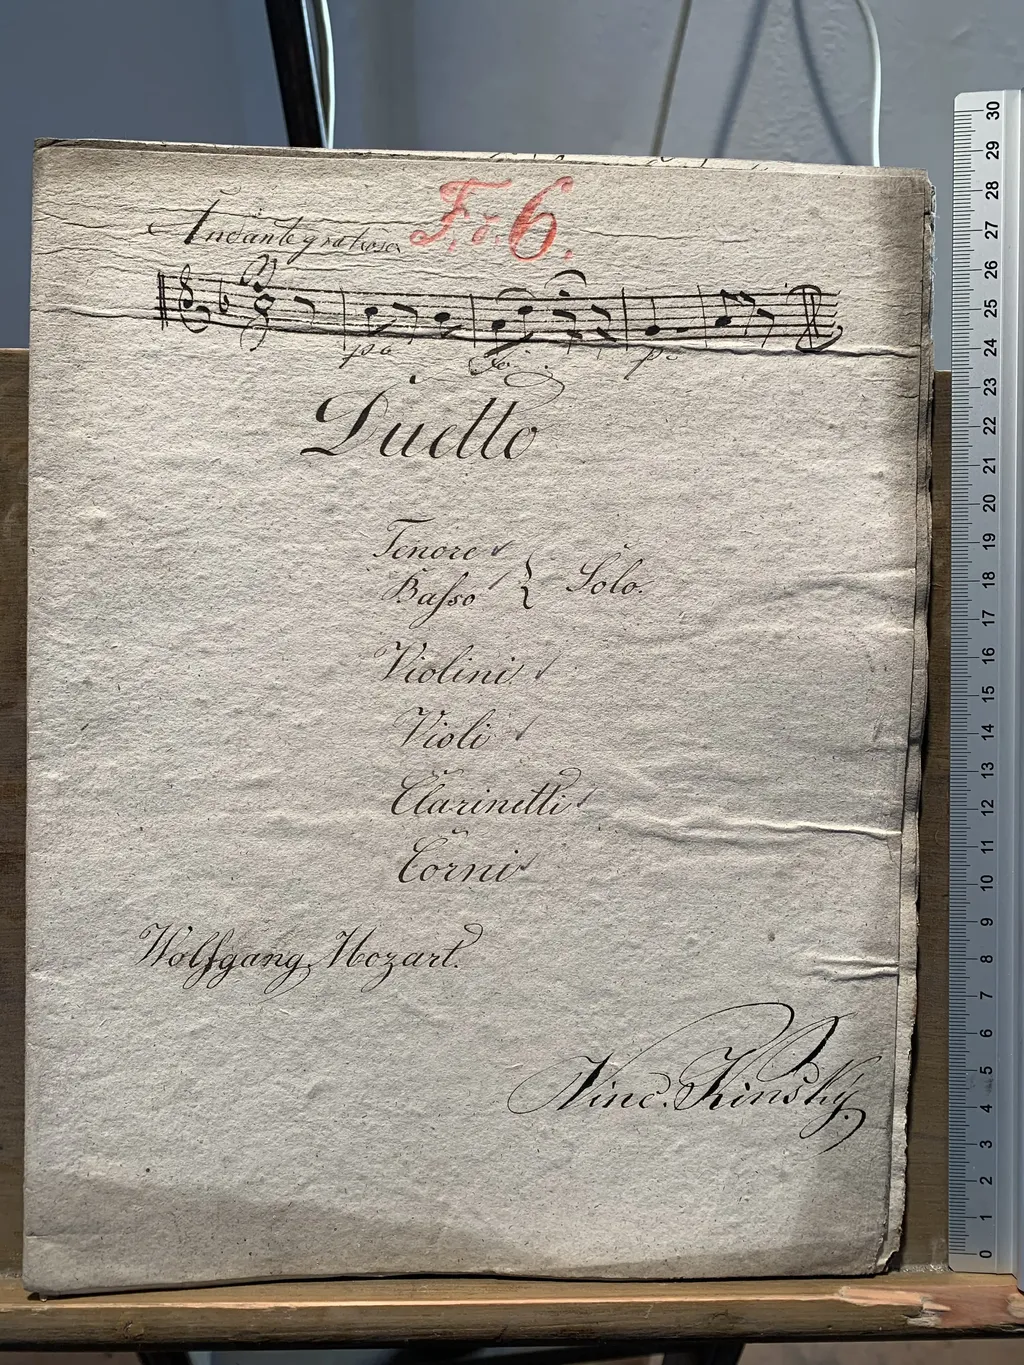 Fº: 6.
Andante gratioso
po fo. po
Duetto
Tenore
Basso } Solo.
Violini
Violi
Clarinetti
Corni
Wolfgang Mozart.
Vinc. Kinský
30
29
28
27
26
25
24
23
22
21
20
19
18
17
16
15
14
13
12
11
10
9
8
7
6
5
4
3
2
1
0